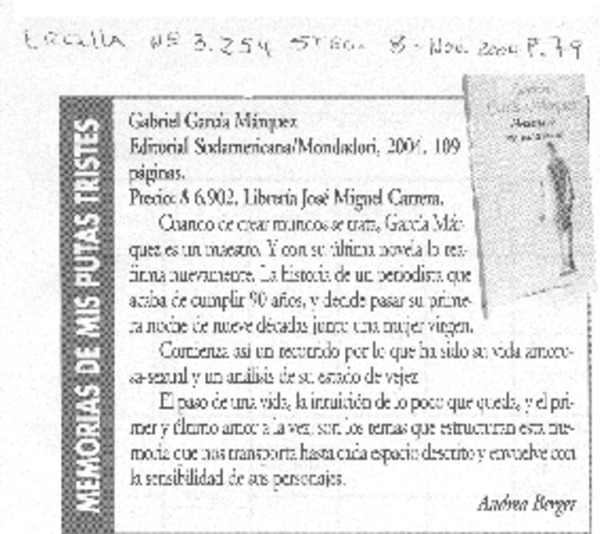 ERCILLA Nº 3.254 STGO. 8 - Nov. 2004 P. 79
MEMORIAS DE MIS PUTAS TRISTES
Gabriel García Márquez
Editorial Sudamericana/Mondadori, 2004. 109
páginas.
Precio: $ 6.902. Librería José Miguel Carrera.
Cuando de crear mundos se trata, García Már-
quez es un maestro. Y con su última novela lo rea-
firma nuevamente. La historia de un periodista que
acaba de cumplir 90 años, y decide pasar su prime-
ra noche de nueve décadas junto una mujer virgen.
Comienza así un recorrido por lo que ha sido su vida amoro-
sa-sexual y un análisis de su estado de vejez.
El paso de una vida, la intuición de lo poco que queda, y el pri-
mer y último amor a la vez, son los temas que estructuran esta me-
moria que nos transporta hasta cada espacio descrito y envuelve con
la sensibilidad de sus personajes.
Andrea Berger